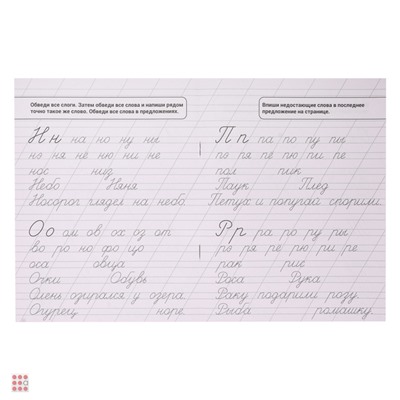 Обведи все слоги. Затем обведи все слова и напиши рядом
точно такое же слово. Обведи все слова в предложениях.
Н н на но ну ны
нь ня не ню ни не
нос низ
Небо Няня
Носорог глядел на небо.
О о ом ов ох оз от
во ро но фо що
оса овца
Очки Обувь
Олень озирался у озера.
Огурец норе.
Впиши недостающие слова в последнее
предложение на странице.
П п па по пу пы
пь пя пе пю пи пе
пал пик
Паук Плед
Петух и попугай спорили.
Р р ра ро ру ры
рь ря ре рю ри ре
рак рис
Роса Рука
Раку подарили розу.
Рыба ромашку.